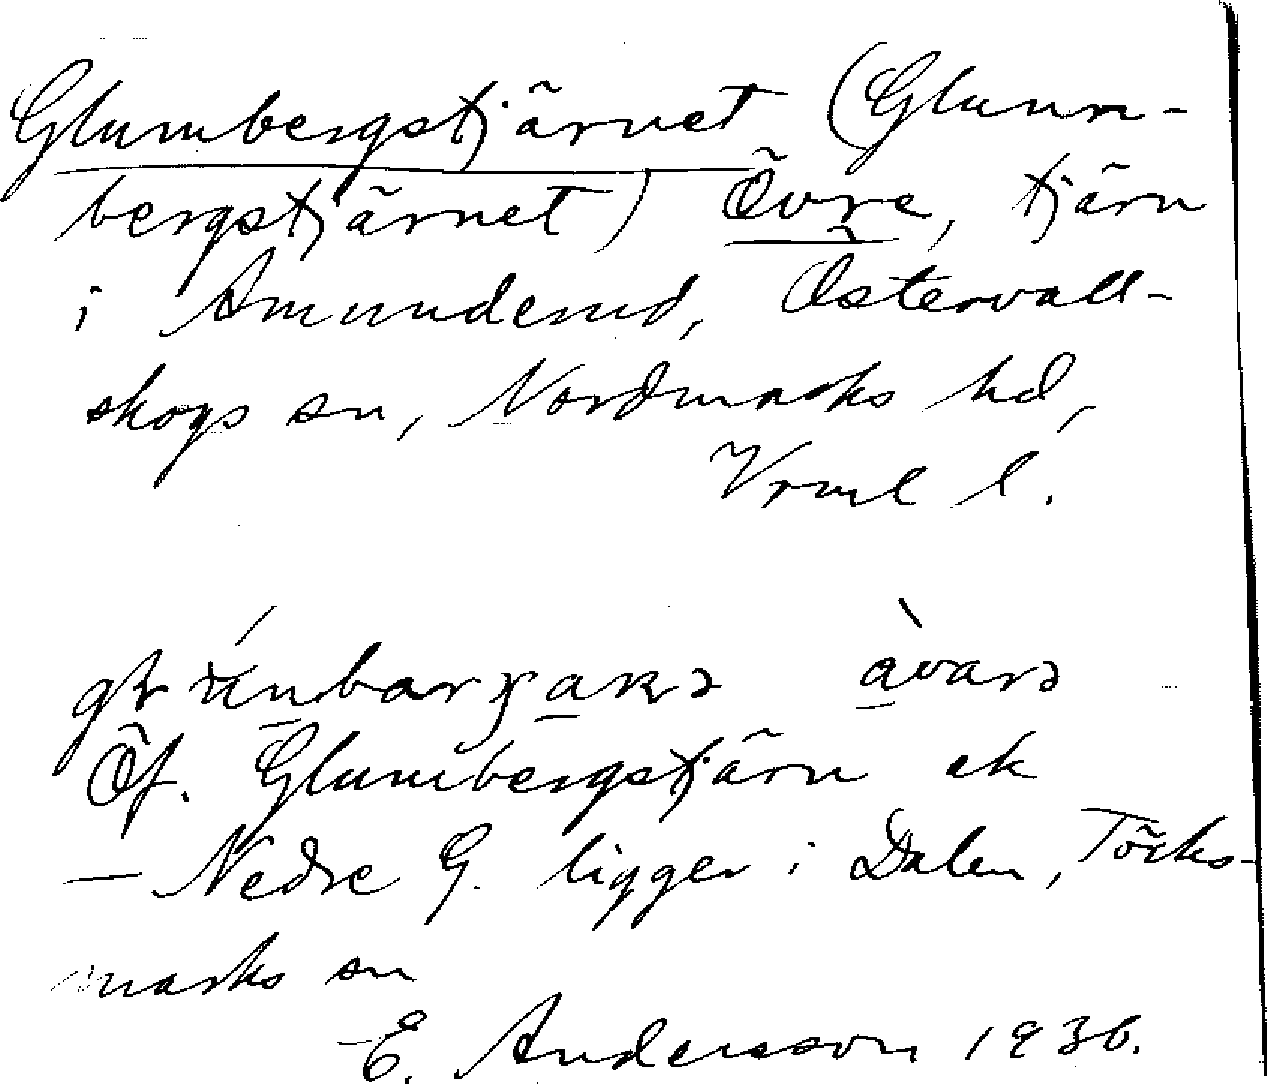 Glumbergstjärnet (Glunn-
bergstjärnet) Övre, tjärn
i Amunderud, Östervall-
skogs sn, Nordmarks hd,
Vrml l.
Öf. Glumbergstjärn ek
— Nedre G. ligger i Dalen, Töcks-
marks sn
E. Andersson 1936.